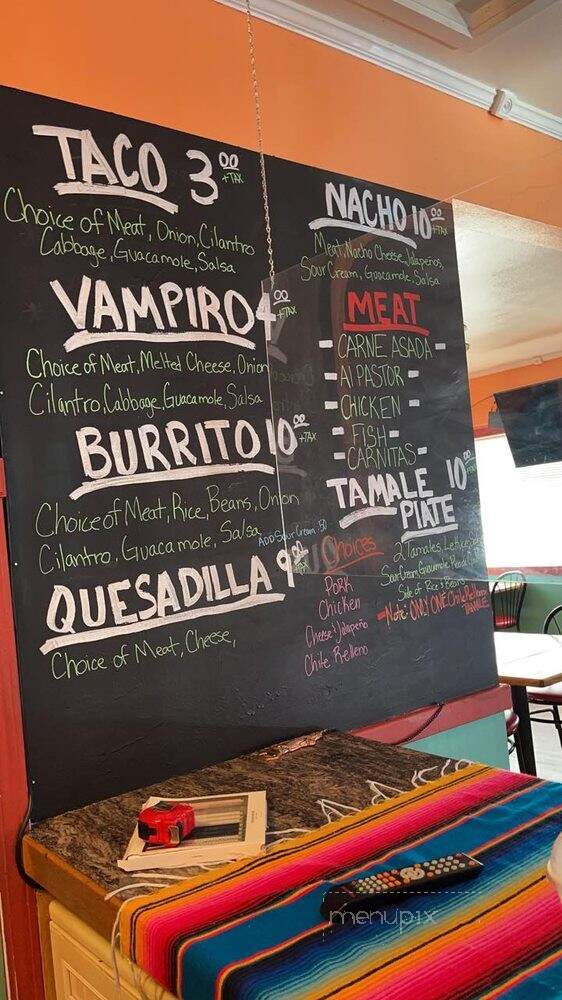 TACO 3 00 +TAX
Choice of Meat, Onion, Cilantro
Cabbage, Guacamole, Salsa
VAMPIRO 4 00 +TAX
Choice of Meat, Melted Cheese, Onion
Cilantro, Cabbage, Guacamole, Salsa
BURRITO 10 00 +TAX
Choice of Meat, Rice, Beans, Onion
Cilantro, Guacamole, Salsa
ADD Sour Cream .50
QUESADILLA 9 00
Choice of Meat, Cheese,
NACHO 10 00 +TAX
Meat, Nacho Cheese, Jalapeños,
Sour Cream, Guacamole, Salsa
MEAT
- CARNE ASADA -
- Al PASTOR -
- CHICKEN -
- FISH -
- CARNITAS -
TAMALE PlATE 10 00
2 Tamales, Lettuce,
Sour Cream, Guacamole,
Side of Rice & Beans
Note: ONLY ONE Chile Relleno TAMALE
Choices
PORK
Chicken
Cheese & Jalapeño
Chile Relleno
menupix